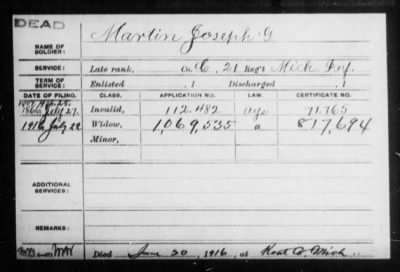 DEAD
NAME OF SOLDIER: Martin, Joseph G.
SERVICE: Late rank, Co. C, 21 Reg't Mich Inf.
TERM OF SERVICE: Enlisted , 1 Discharged , 1
DATE OF FILING. CLASS. APPLICATION NO. LAW. CERTIFICATE NO.
1866 Invalid, 112.482 Age 71.765
1916 July 22 Widow, 1,069,535 a. 817,694
Minor,
ADDITIONAL SERVICES:
REMARKS:
Died June 20, 1916, at Kent Co, Mich.